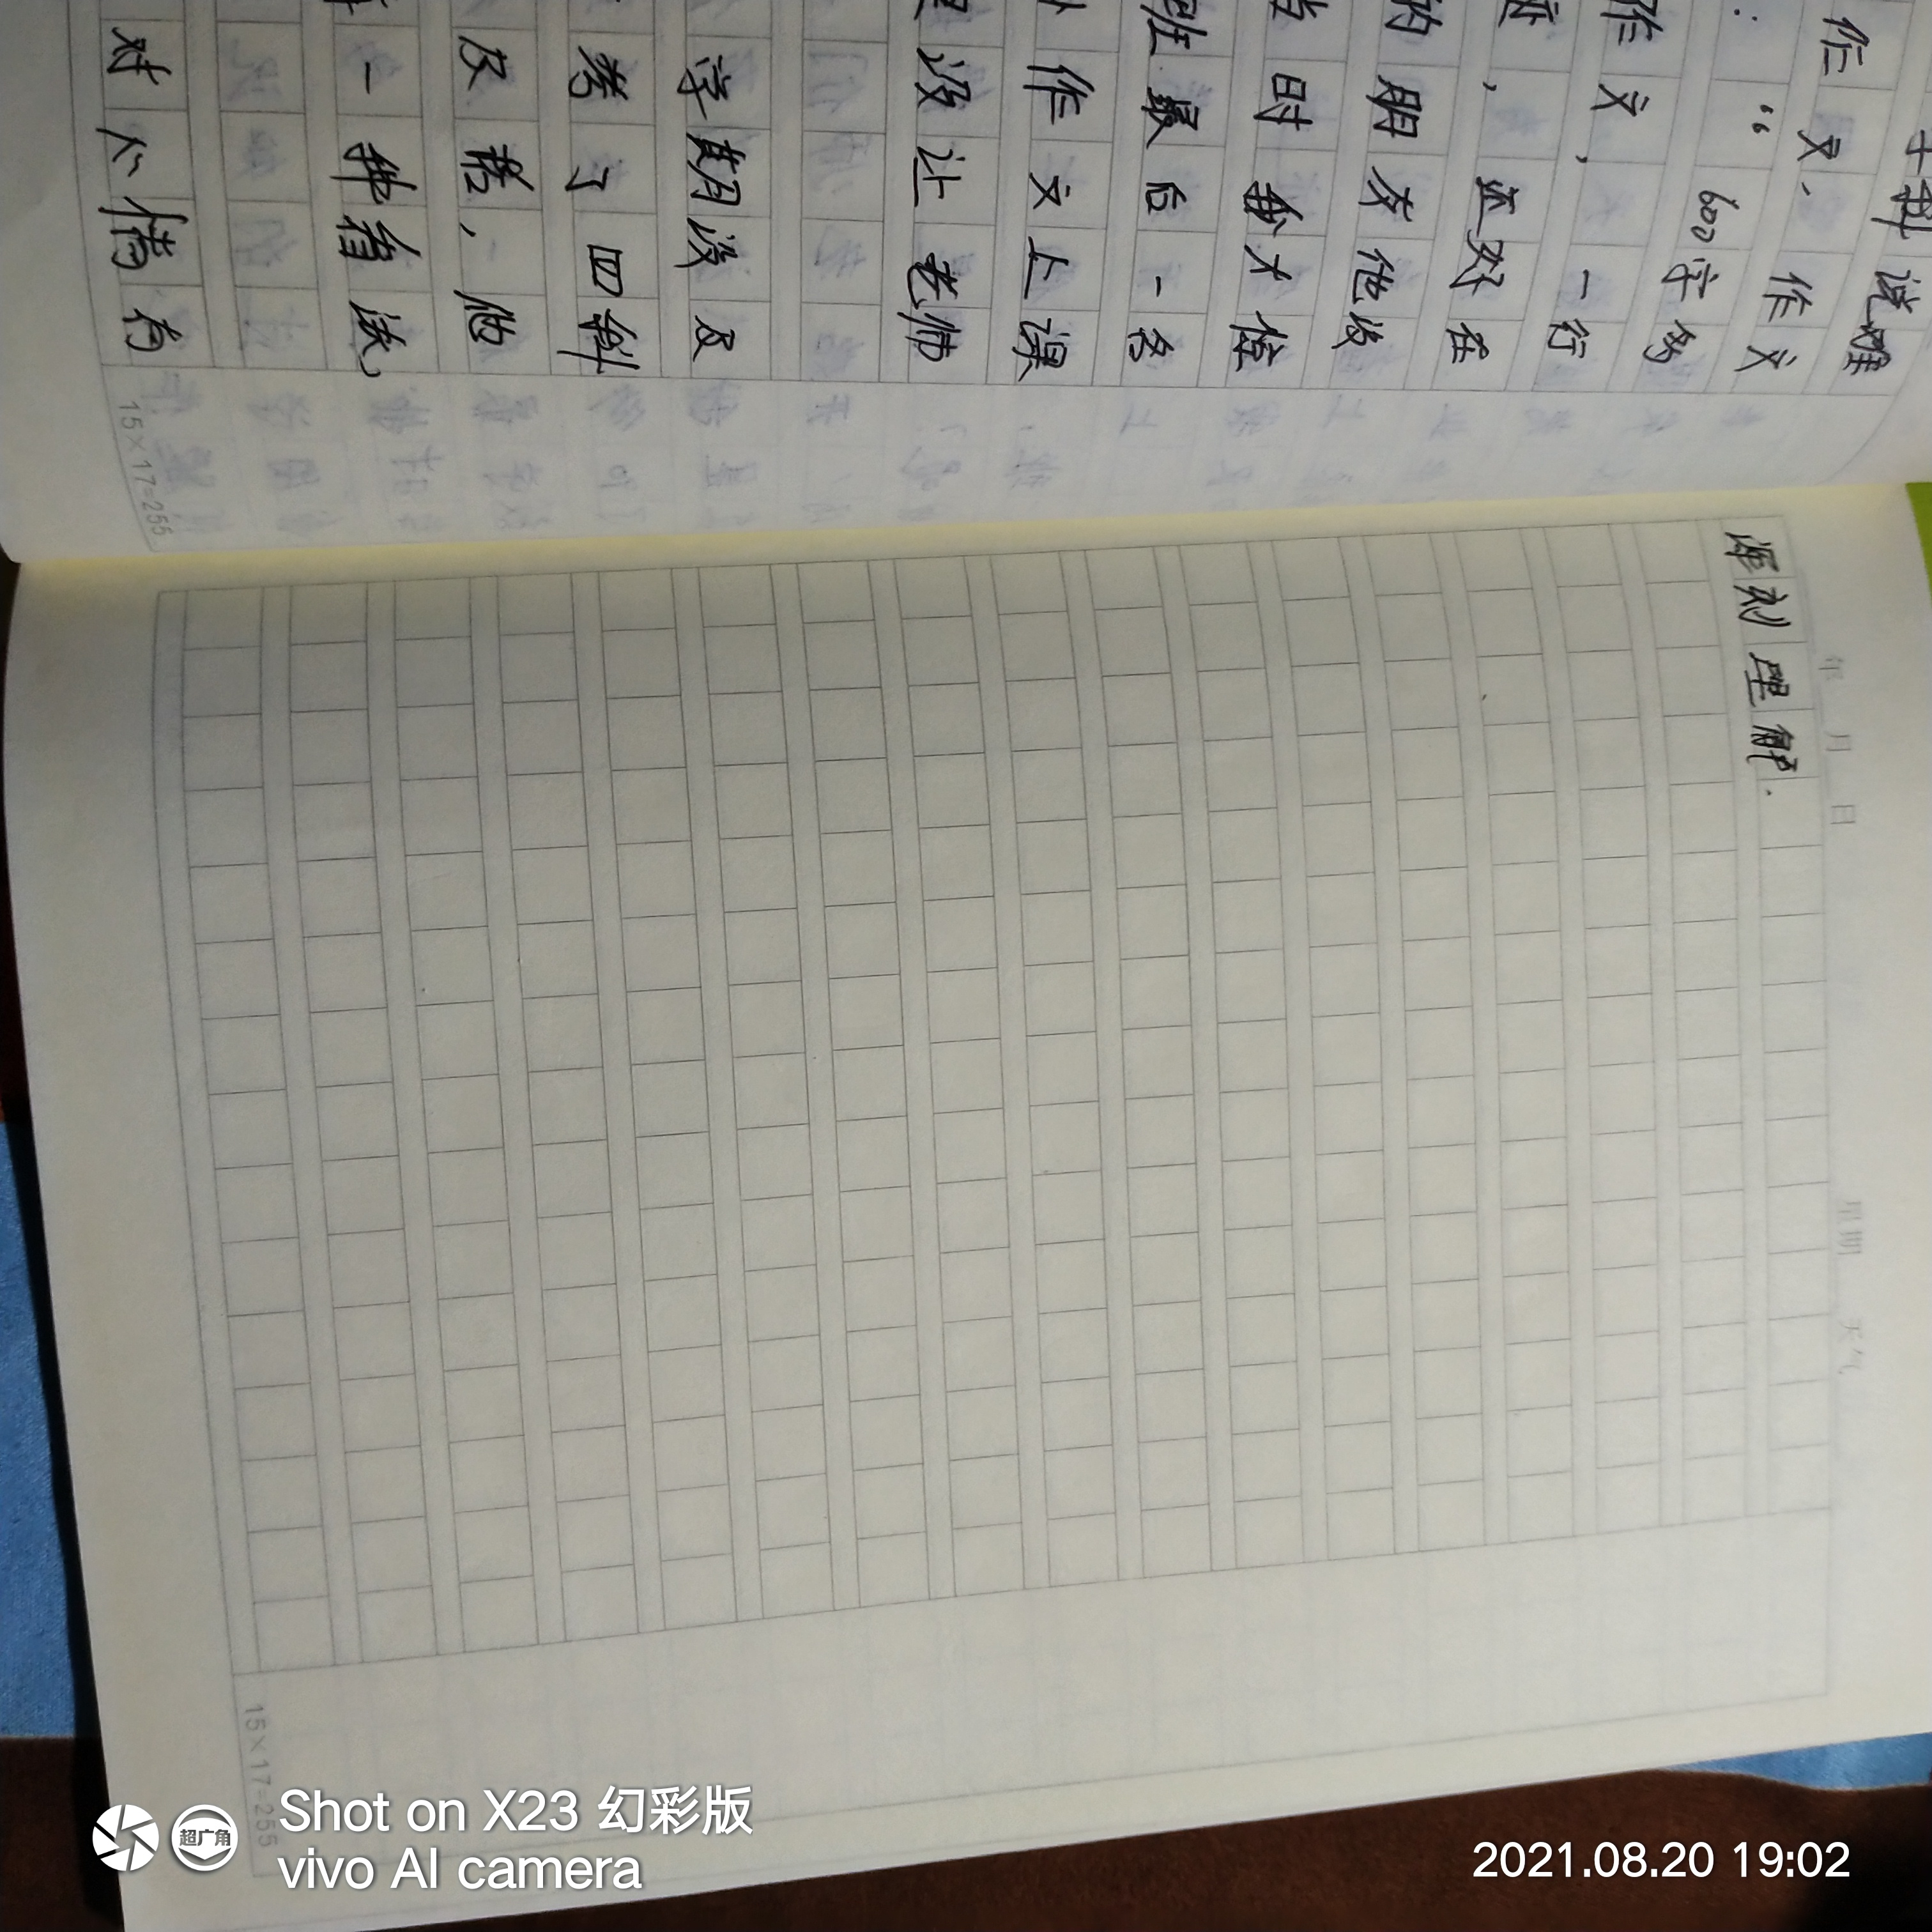 说难
作文、作文
：“600字的
作文，一行
，还好在
的朋友他没
当时
班最后一名
作文上课
没让老师
学期没及
考了四科
及格，他
一种看法，
对心情有
15×17=255
年 月 日 星期 天气
深刻理解.
15×17=255
Shot on X23 幻彩版
超广角
vivo AI camera
2021.08.20 19:02